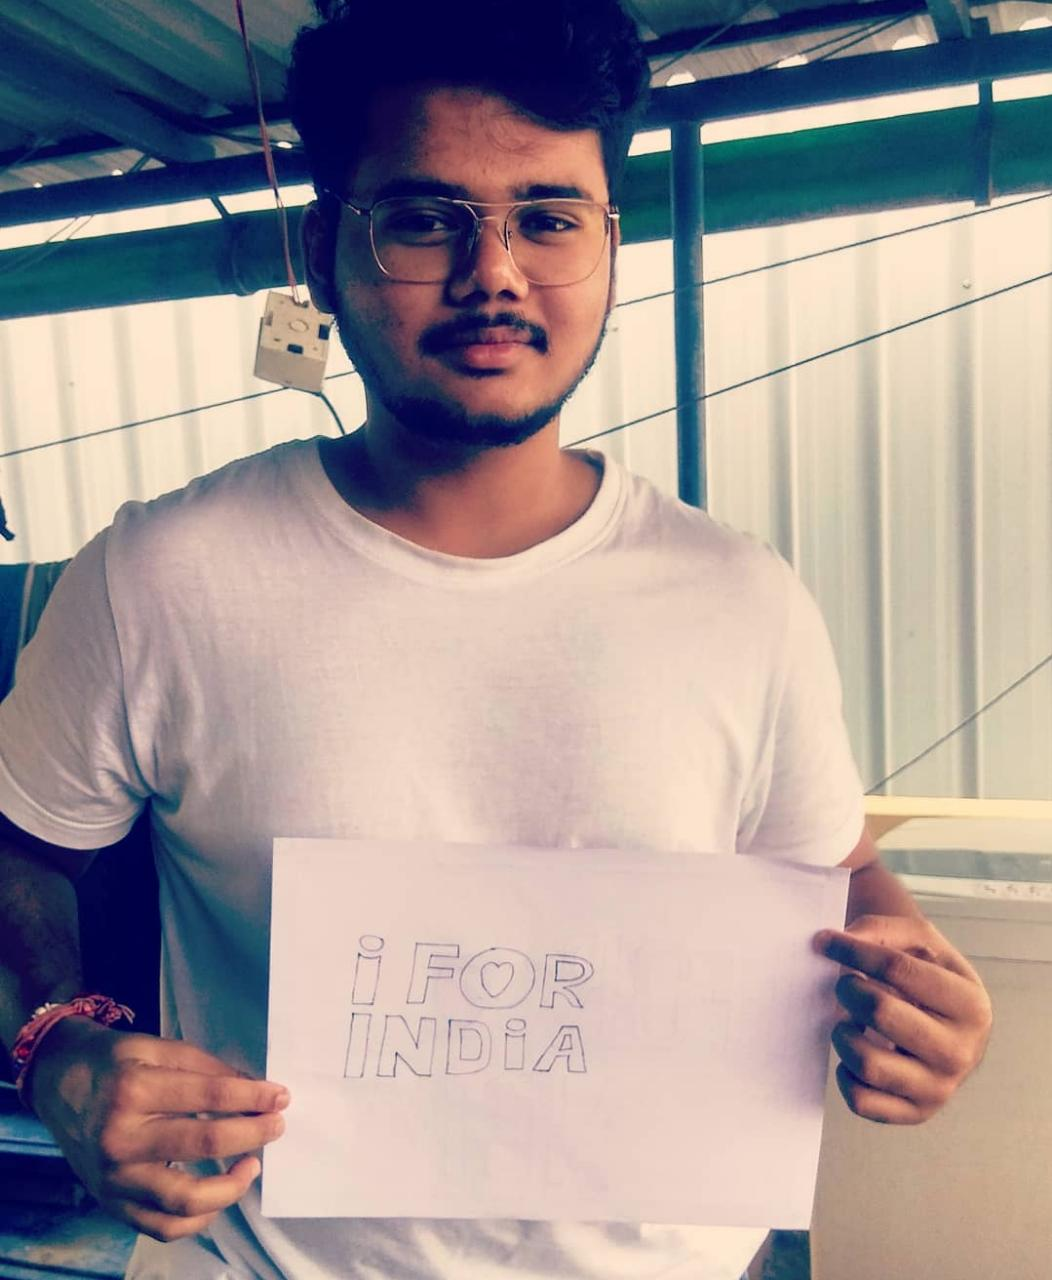 i FOR
INDiA